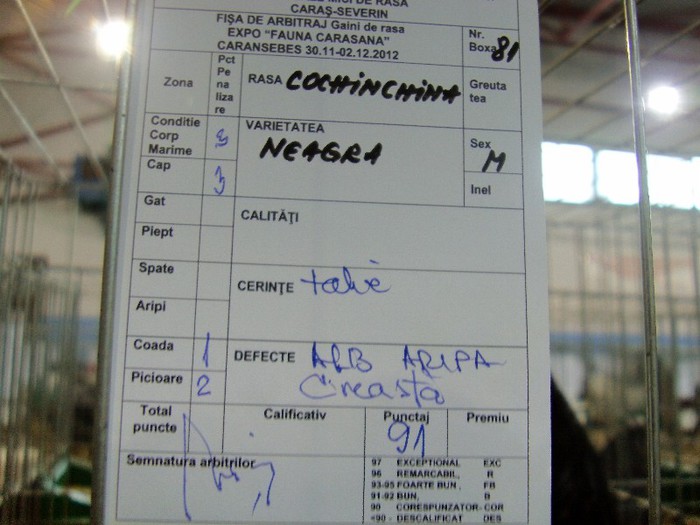 CARAŞ-SEVERIN
FIŞA DE ARBITRAJ Gaini de rasa
EXPO "FAUNA CARASANA"
CARANSEBES 30.11-02.12.2012
Nr.
Boxa 81
Zona
Pct
Pe
na
liza
re
RASA COCHINCHINA
Greuta
tea
Conditie
Corp
Marime 3
VARIETATEA
NEAGRA
Sex
M
Cap 3
Inel
Gat
CALITĂŢI
Piept
Spate
CERINŢE
Aripi
Coada 1
DEFECTE ALB ARIPA
Picioare 2
Creasta
Total
puncte
Calificativ
Punctaj
91
Premiu
Semnatura arbitrilor
97 EXCEPTIONAL EXC
96 REMARCABIL, R
93-95 FOARTE BUN, FB
91-92 BUN, B
90 CORESPUNZATOR-COR
<90 - DESCALIFICAT DES